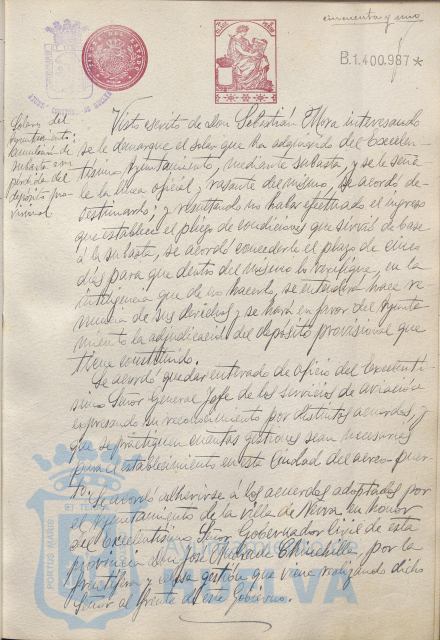 cincuenta y uno
B.1.400.987*
Solares del
Ayuntamiento:
subasta con
pérdida del
depósito pro-
visional
Visto escrito de Don Sebastián Mora interesando
se le demarque el solar que ha adquirido del Excelen-
tísimo Ayuntamiento, mediante subasta, y se le seña-
le la línea oficial, y rasante del mismo, se acordó, de-
sestimarlo; y resultando no haber efectuado el ingreso
que establece el pliego de condiciones que sirvió de base
á la subasta, se acordó concederle el plazo de cinco
días para que dentro del mismo lo verifique, en la
inteligencia que de no hacerlo, se entenderá hace re-
nuncia de sus derechos y se hará en favor del Ayunta-
miento la adjudicación del depósito provisional que
tiene constituido.
Se acordó quedar enterado de oficio del Excelentí-
simo Señor General Jefe de los servicios de aviación
expresando su reconocimiento por distintos acuerdos, y
que se practiquen cuantas gestiones sean necesarias
para el establecimiento en esta Ciudad del aereo-puer-
to.
Se acordó adherirse á los acuerdos adoptados por
el Ayuntamiento de la villa de Nerva en honor
del Excelentísimo Señor Gobernador Civil de esta
provincia Don José Andrade Chinchilla, por la
gestión que viene realizando dicho
Señor al frente de este Gobierno.
PORTUS MARIS
ET TERRÆ